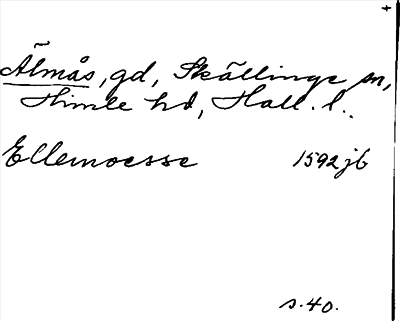 Älmås, gd, Skällinge sn,
Himle hd, Hall. l.
Ellemoesse 1592 jb
s. 40.